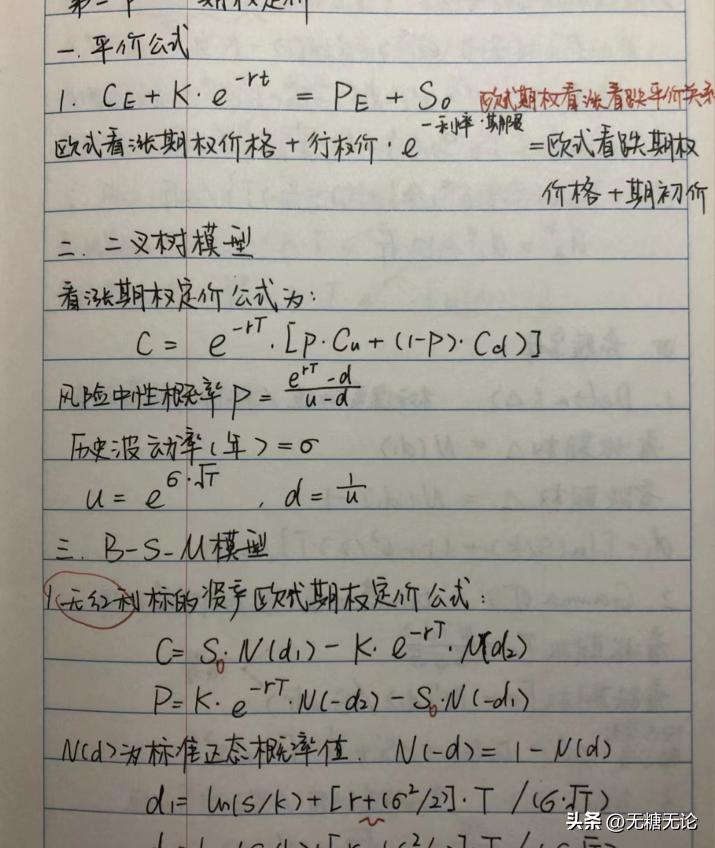 一. 平价公式
1. C_E + K·e^{-rt} = P_E + S_0 欧式期权看涨看跌平价关系
欧式看涨期权价格 + 行权价·e^{-利率·期限} = 欧式看跌期权
价格 + 期初价
二. 二叉树模型
看涨期权定价公式为:
C = e^{-rT}·[P·Cu + (1-P)·Cd)]
风险中性概率 P = \frac{e^{rT}-d}{u-d}
历史波动率(年) = σ
u = e^{σ·√T} , d = \frac{1}{u}
三. B-S-M模型
1(无红利标的资产欧式期权定价公式:
C = S_0·N(d_1) - K·e^{-rT}·N(d_2)
P = K·e^{-rT}·N(-d_2) - S_0·N(-d_1)
N(d)为标准正态概率值. N(-d) = 1 - N(d)
d_1 = ln(S/K) + [r+(σ^2/2)]·T / (σ·√T)
头条 @无糖无论